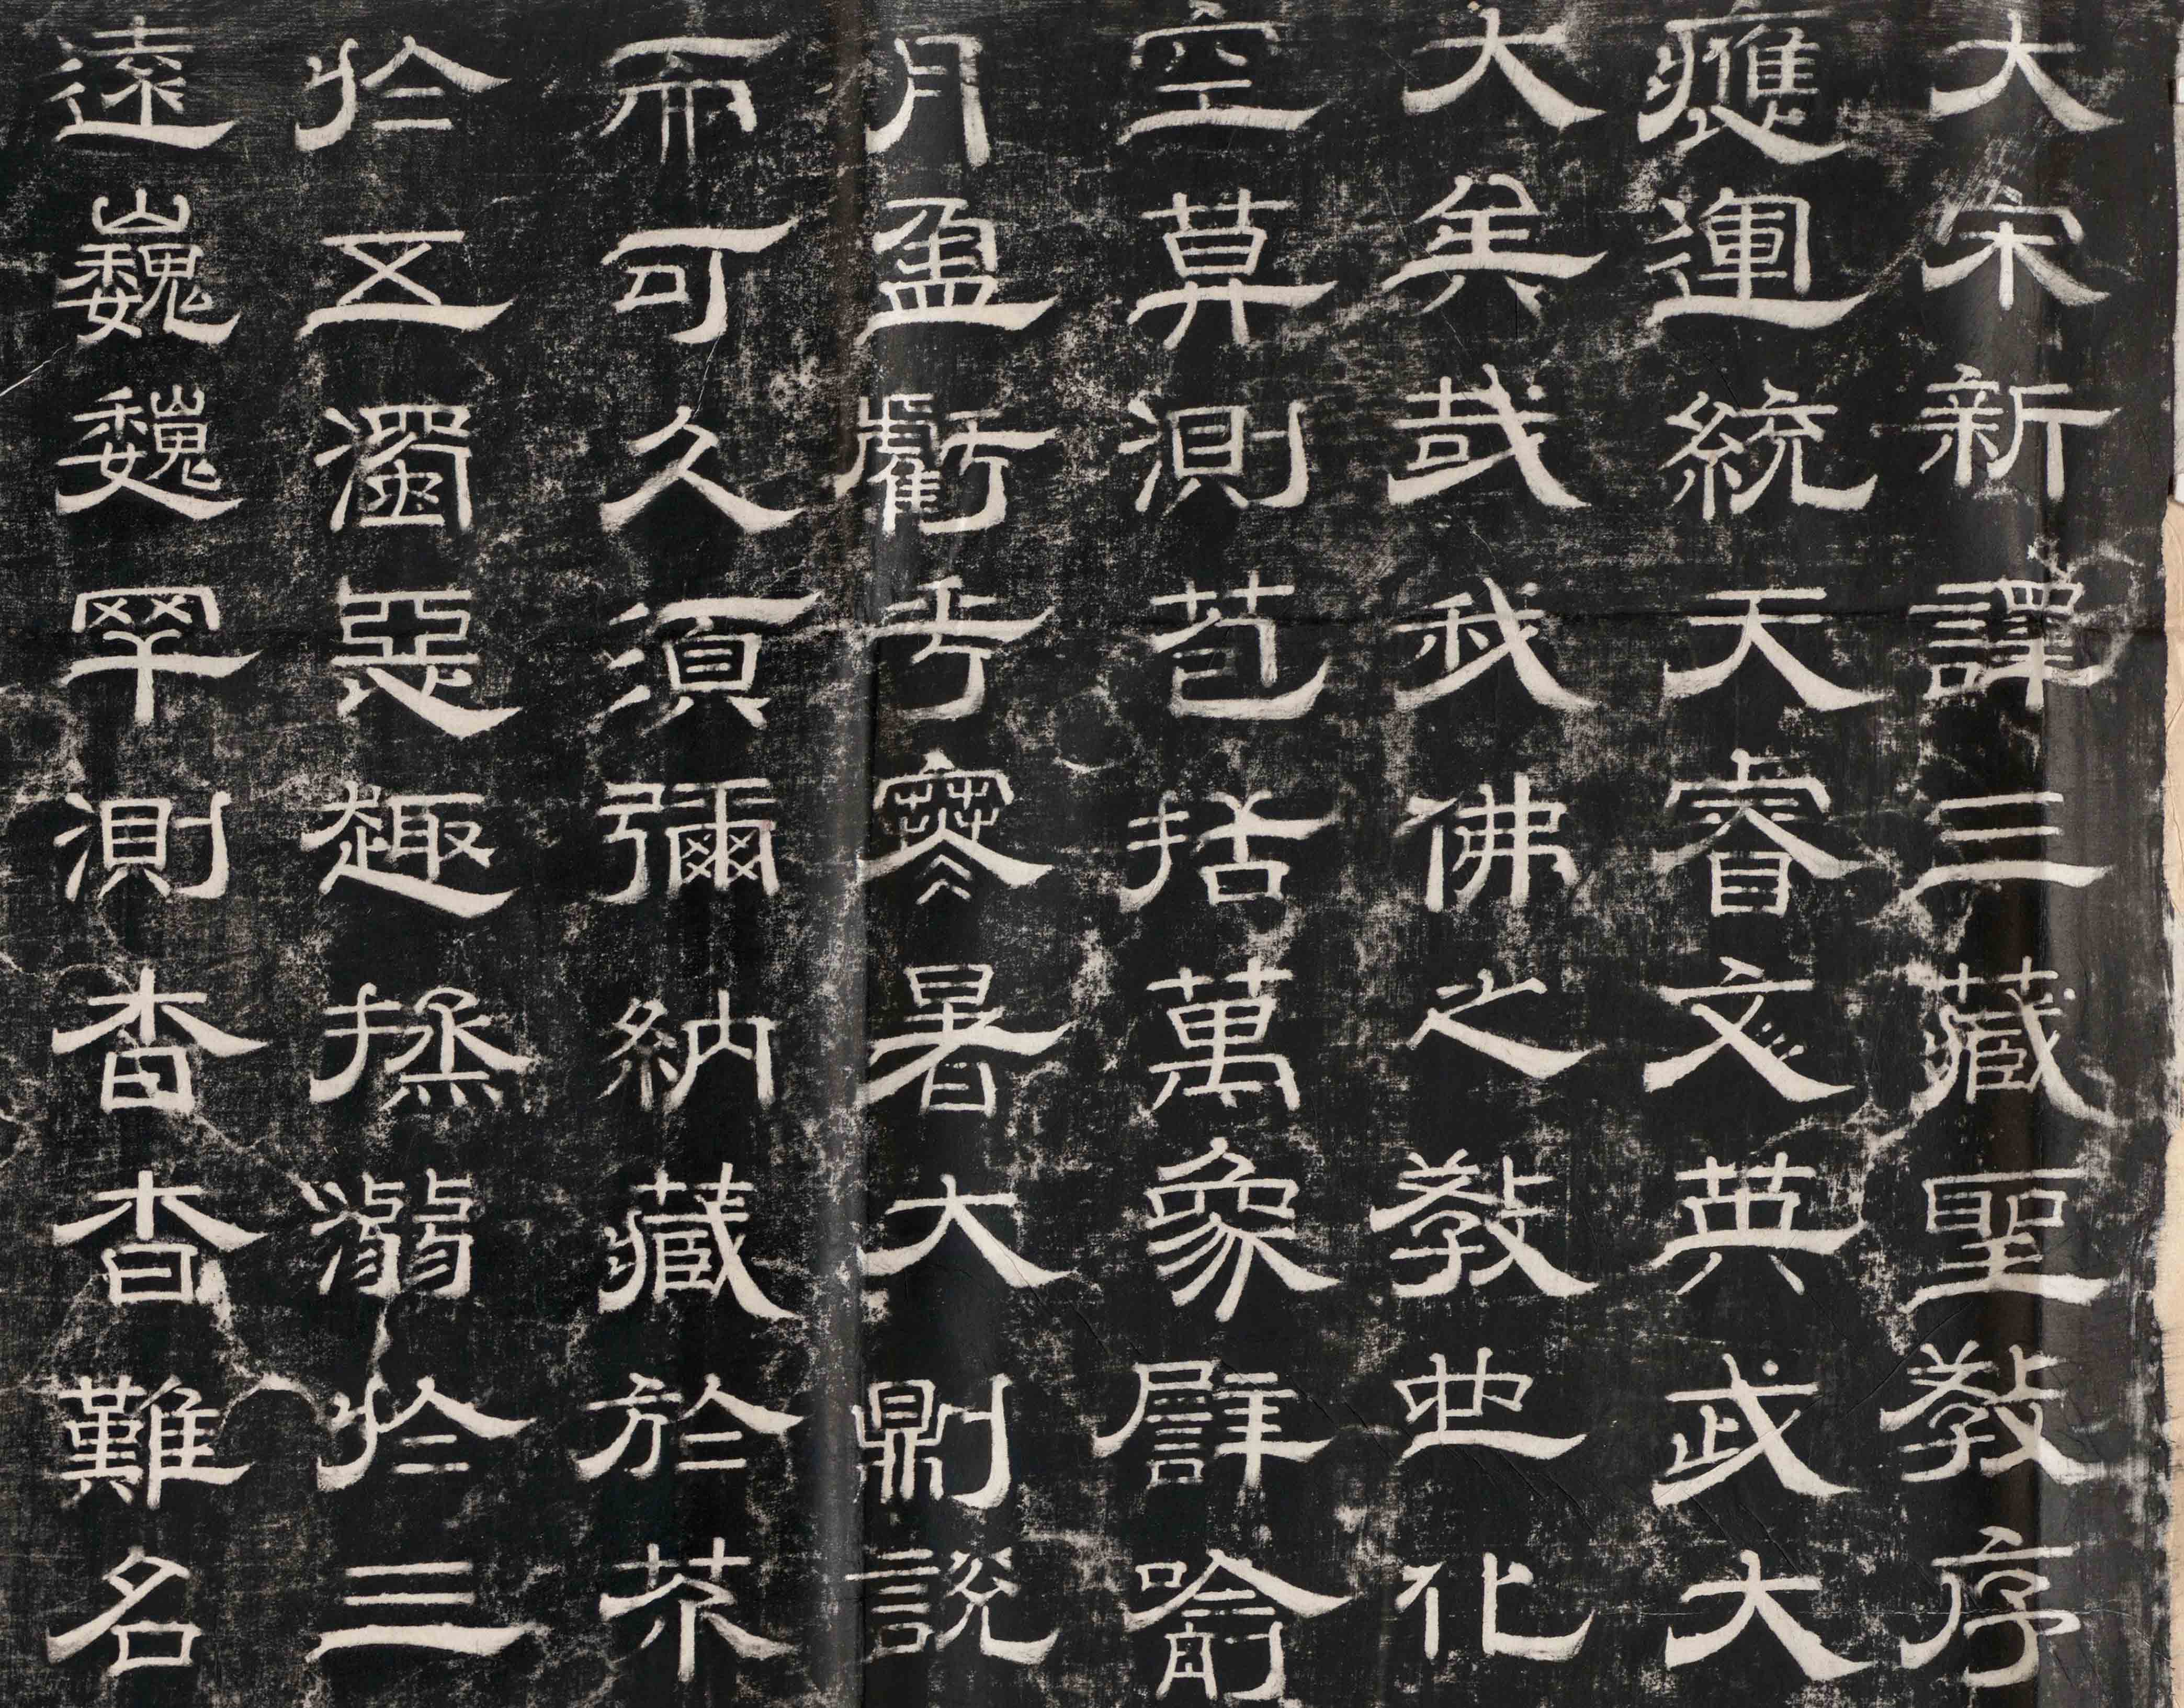 大宋新譯三藏聖教序
應運統天睿文英武大
大矣哉我佛之教也化
空莫測苞括萬象譬喻
月盈虧乎寒暑大則説
而可久須彌納藏於芥
於五濁惡趣拯溺於三
遠巍巍罕測杳杳難名